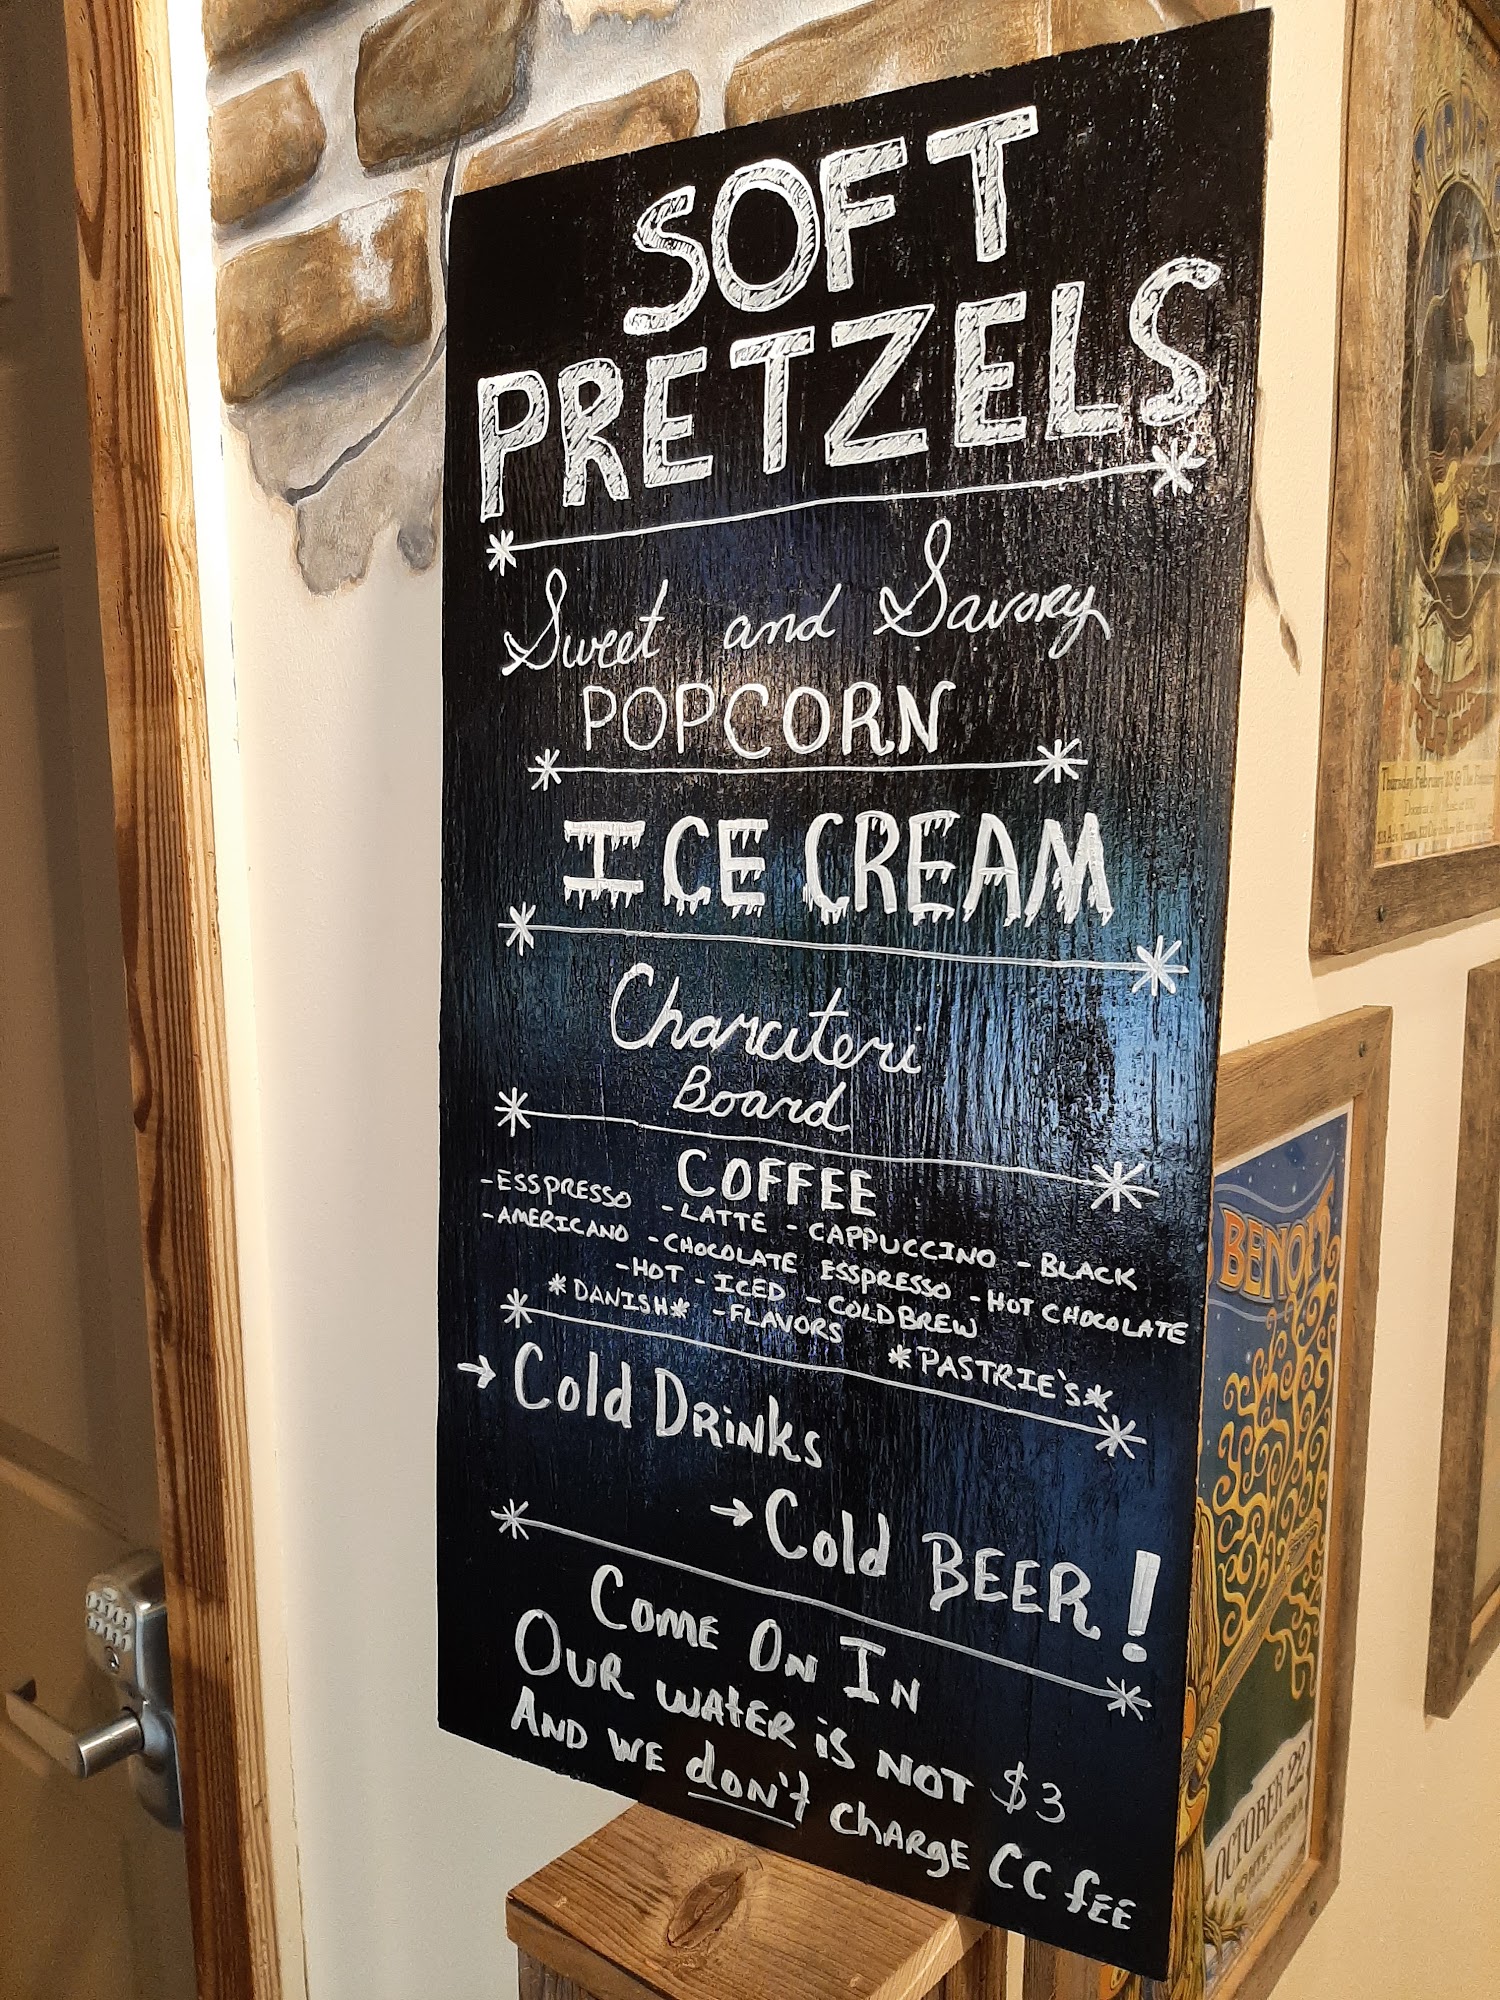 SOFT
PRETZELS
Sweet and Savory
POPCORN
ICE CREAM
Charcuteri
Board
COFFEE
-ESSPRESSO -LATTE -CAPPUCCINO -BLACK
-AMERICANO -CHOCOLATE ESSPRESSO -HOT CHOCOLATE
-HOT -ICED -COLD BREW
*DANISH* -FLAVORS *PASTRIE'S*
→ Cold DRiNKS
→ Cold BEER!
COME ON IN
OUR WATER iS NOT $3
AND WE don't CHARGE CC fEE
Thursday, February
BENOIT
OCTOBER 22